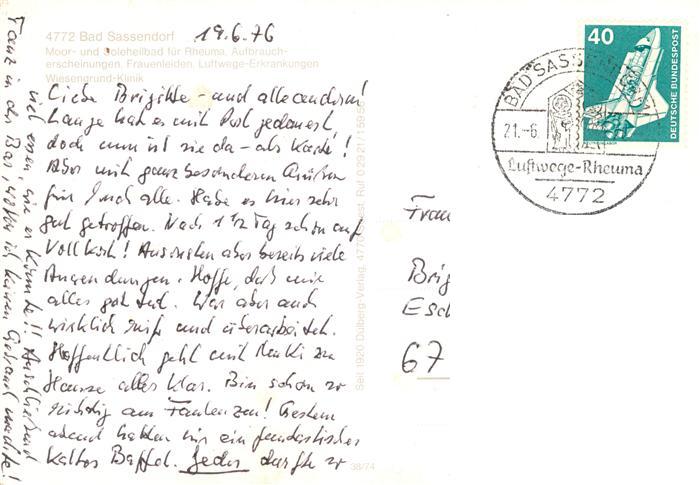 19.6.76
4772 Bad Sassendorf
Moor- und Soleheilbad für Rheuma, Aufbrauch-
erscheinungen, Frauenleiden, Luftwege-Erkrankungen
Wiesengrund-Klinik
Liebe Brigitte - und alle anderen!
Lange hat es mit Post gedauert,
doch nun ist sie da - als Karte!
Aber mit ganz besonderen Grüßen
für Euch alle. Habe es hier sehr
gut getroffen. Nach 1 1/2 Tag schon auf
Vollkost! Ansonsten aber bereits viele
Anwendungen. Hoffe, daß mir
alles gut tut. War aber auch
wirklich reif und überarbeitet.
Hoffentlich geht mit zu
Hause alles klar. Bin schon so
richtig am Faulenzen! Gestern
abend hatten wir ein fantastisches
kaltes Buffet. Jeder durfte so
viel essen wie er konnte!! Anschließend
Tanz in der Bar, wobei ich keinen Gebrauch machte!
Seit 1920 Dülberg-Verlag, 4770 Soest, Ruf 0 29 21 /
38/74
40
DEUTSCHE BUNDESPOST
BAD SASSENDORF
21.-6.
Luftwege-Rheuma
4772
Frau
Brig
Esch
67